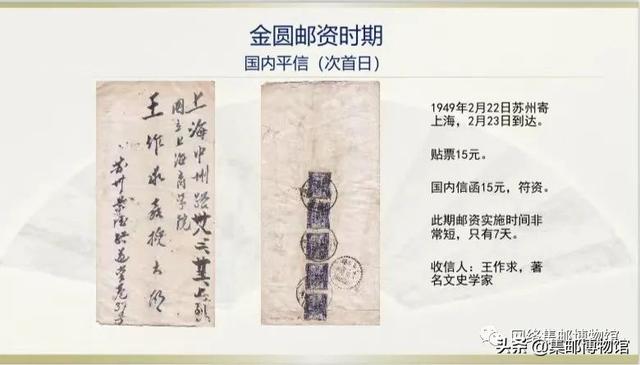 金圆邮资时期
国内平信（次首日）
上海中州路
国立上海商学院
王作求教授大启
1949年2月22日苏州寄
上海，2月23日到达。
贴票15元。
国内信函15元，符资。
此期邮资实施时间非
常短，只有7天。
收信人：王作求，著
名文史学家
网络集邮博物馆
头条@集邮博物馆